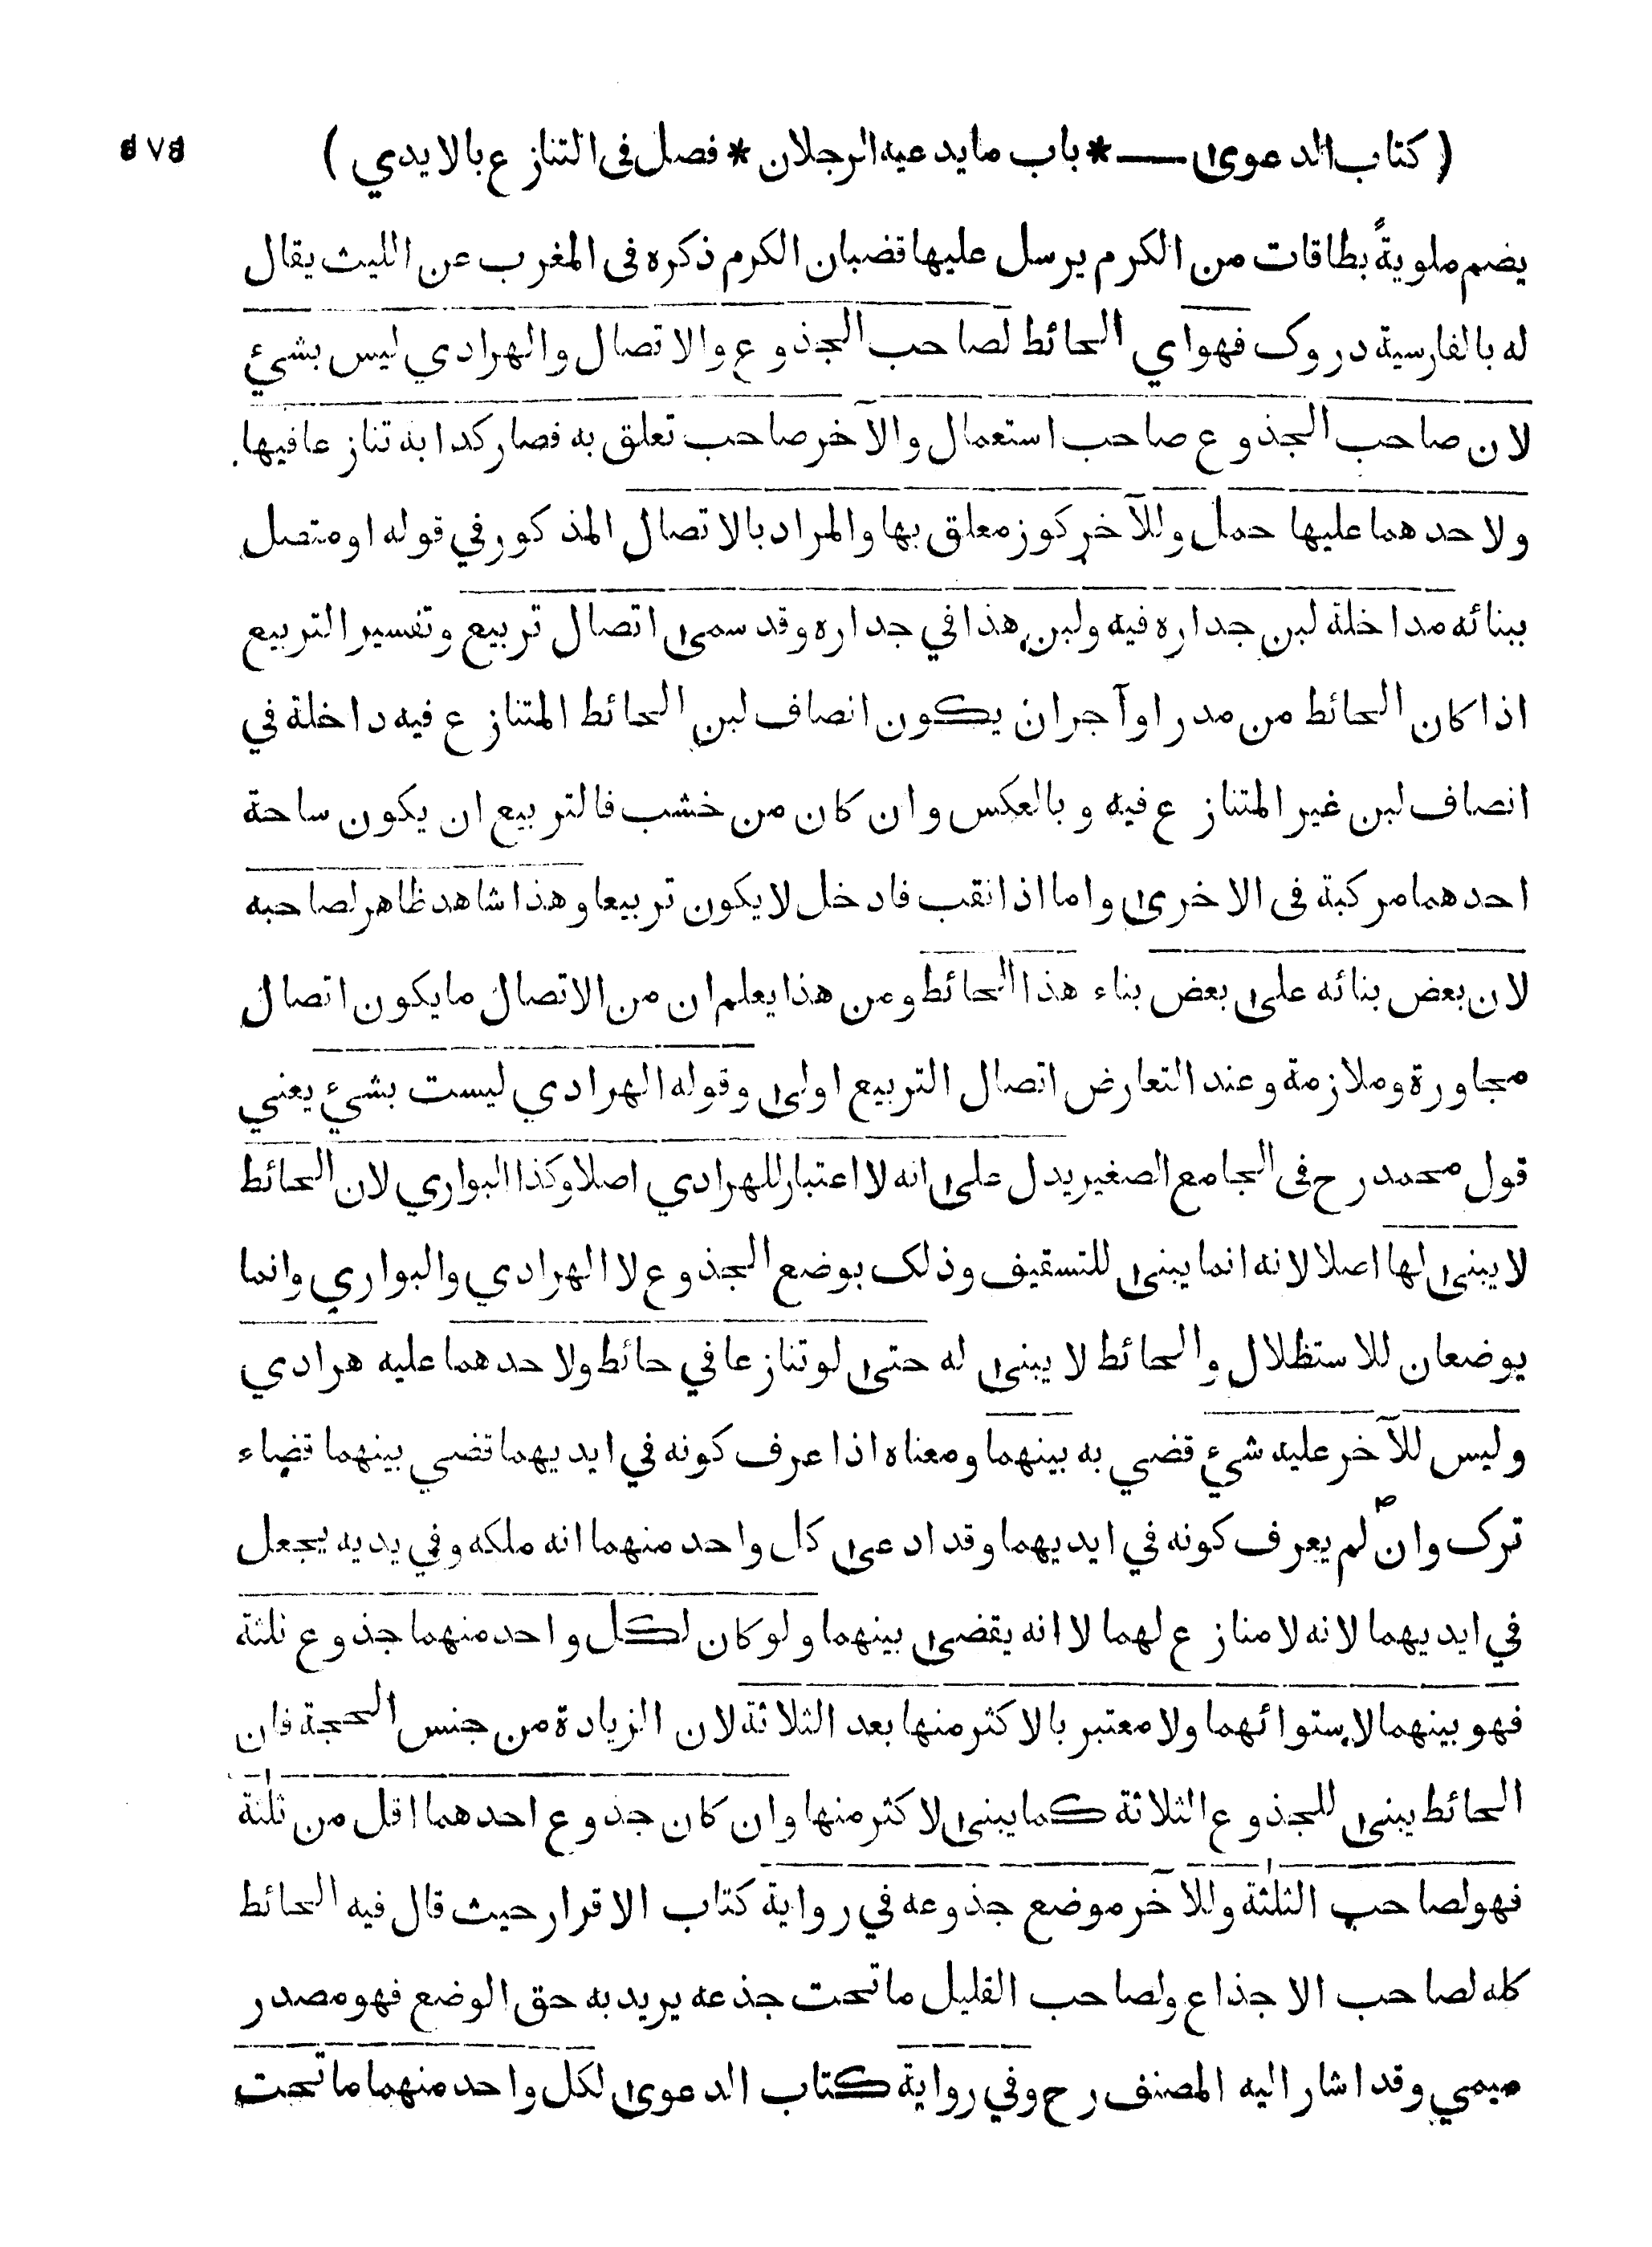 ( كتاب الدعوى —— * باب ما يدعيه الرجلان * فصل فى التنازع بالايدي ) ٥٧٥
يضم ملويةً بطاقات من الكرم يرسل عليها قضبان الكرم ذكره فى المغرب عن الليث يقال
له بالفارسية دروک فهو اي الحائط لصاحب الجذوع والاتصال والهرادي ليس بشئ
لان صاحب الجذوع صاحب استعمال والآخر صاحب تعلق به فصار كدابة تنازعا فيها
ولاحدهما عليها حمل وللآخر كوز معلق بها والمراد بالاتصال المذكور في قوله او متصل
ببنائه مداخلة لبن جداره فيه ولبن هذا في جداره وقد سمى اتصال تربيع وتفسير التربيع
اذا كان الحائط من مدر او آجر ان يكون انصاف لبن الحائط المتنازع فيه داخلة في
انصاف لبن غير المتنازع فيه وبالعكس وان كان من خشب فالتربيع ان يكون ساحة
احدهما مركبة فى الاخرى واما اذا نقب فادخل لا يكون تربيعا وهذا شاهد ظاهر لصاحبه
لان بعض بنائه على بعض بناء هذا الحائط ومن هذا يعلم ان من الاتصال ما يكون اتصال
مجاورة وملازمة وعند التعارض اتصال التربيع اولى وقوله الهرادي ليست بشئ يعني
قول محمد رح فى الجامع الصغير يدل على انه لا اعتبار للهرادي اصلا وكذا البواري لان الحائط
لا يبنى لها اصلا لانه انما يبنى للتسقيف وذلک بوضع الجذوع لا الهرادي والبواري وانما
يوضعان للاستظلال والحائط لا يبنى له حتى لو تنازعا في حائط ولاحدهما عليه هرادي
وليس للآخر عليه شئ قضي به بينهما ومعناه اذا عرف كونه في ايديهما قضي بينهما قضاء
ترک وان لم يعرف كونه في ايديهما وقد ادعى كل واحد منهما انه ملكه وفي يديه يجعل
في ايديهما لانه لا منازع لهما لا انه يقضى بينهما ولو كان لكل واحد منهما جذوع ثلثة
فهو بينهما لاستوائهما ولا معتبر بالاكثر منها بعد الثلاثة لان الزيادة من جنس الحجة فان
الحائط يبنى للجذوع الثلاثة كما يبنى لاكثر منها وان كان جذوع احدهما اقل من ثلثة
فهو لصاحب الثلثة وللآخر موضع جذوعه في رواية كتاب الاقرار حيث قال فيه الحائط
كله لصاحب الاجذاع ولصاحب القليل ما تحت جذعه يريد به حق الوضع فهو مصدر
ميمي وقد اشار اليه المصنف رح وفي رواية كتاب الدعوى لكل واحد منهما ما تحت